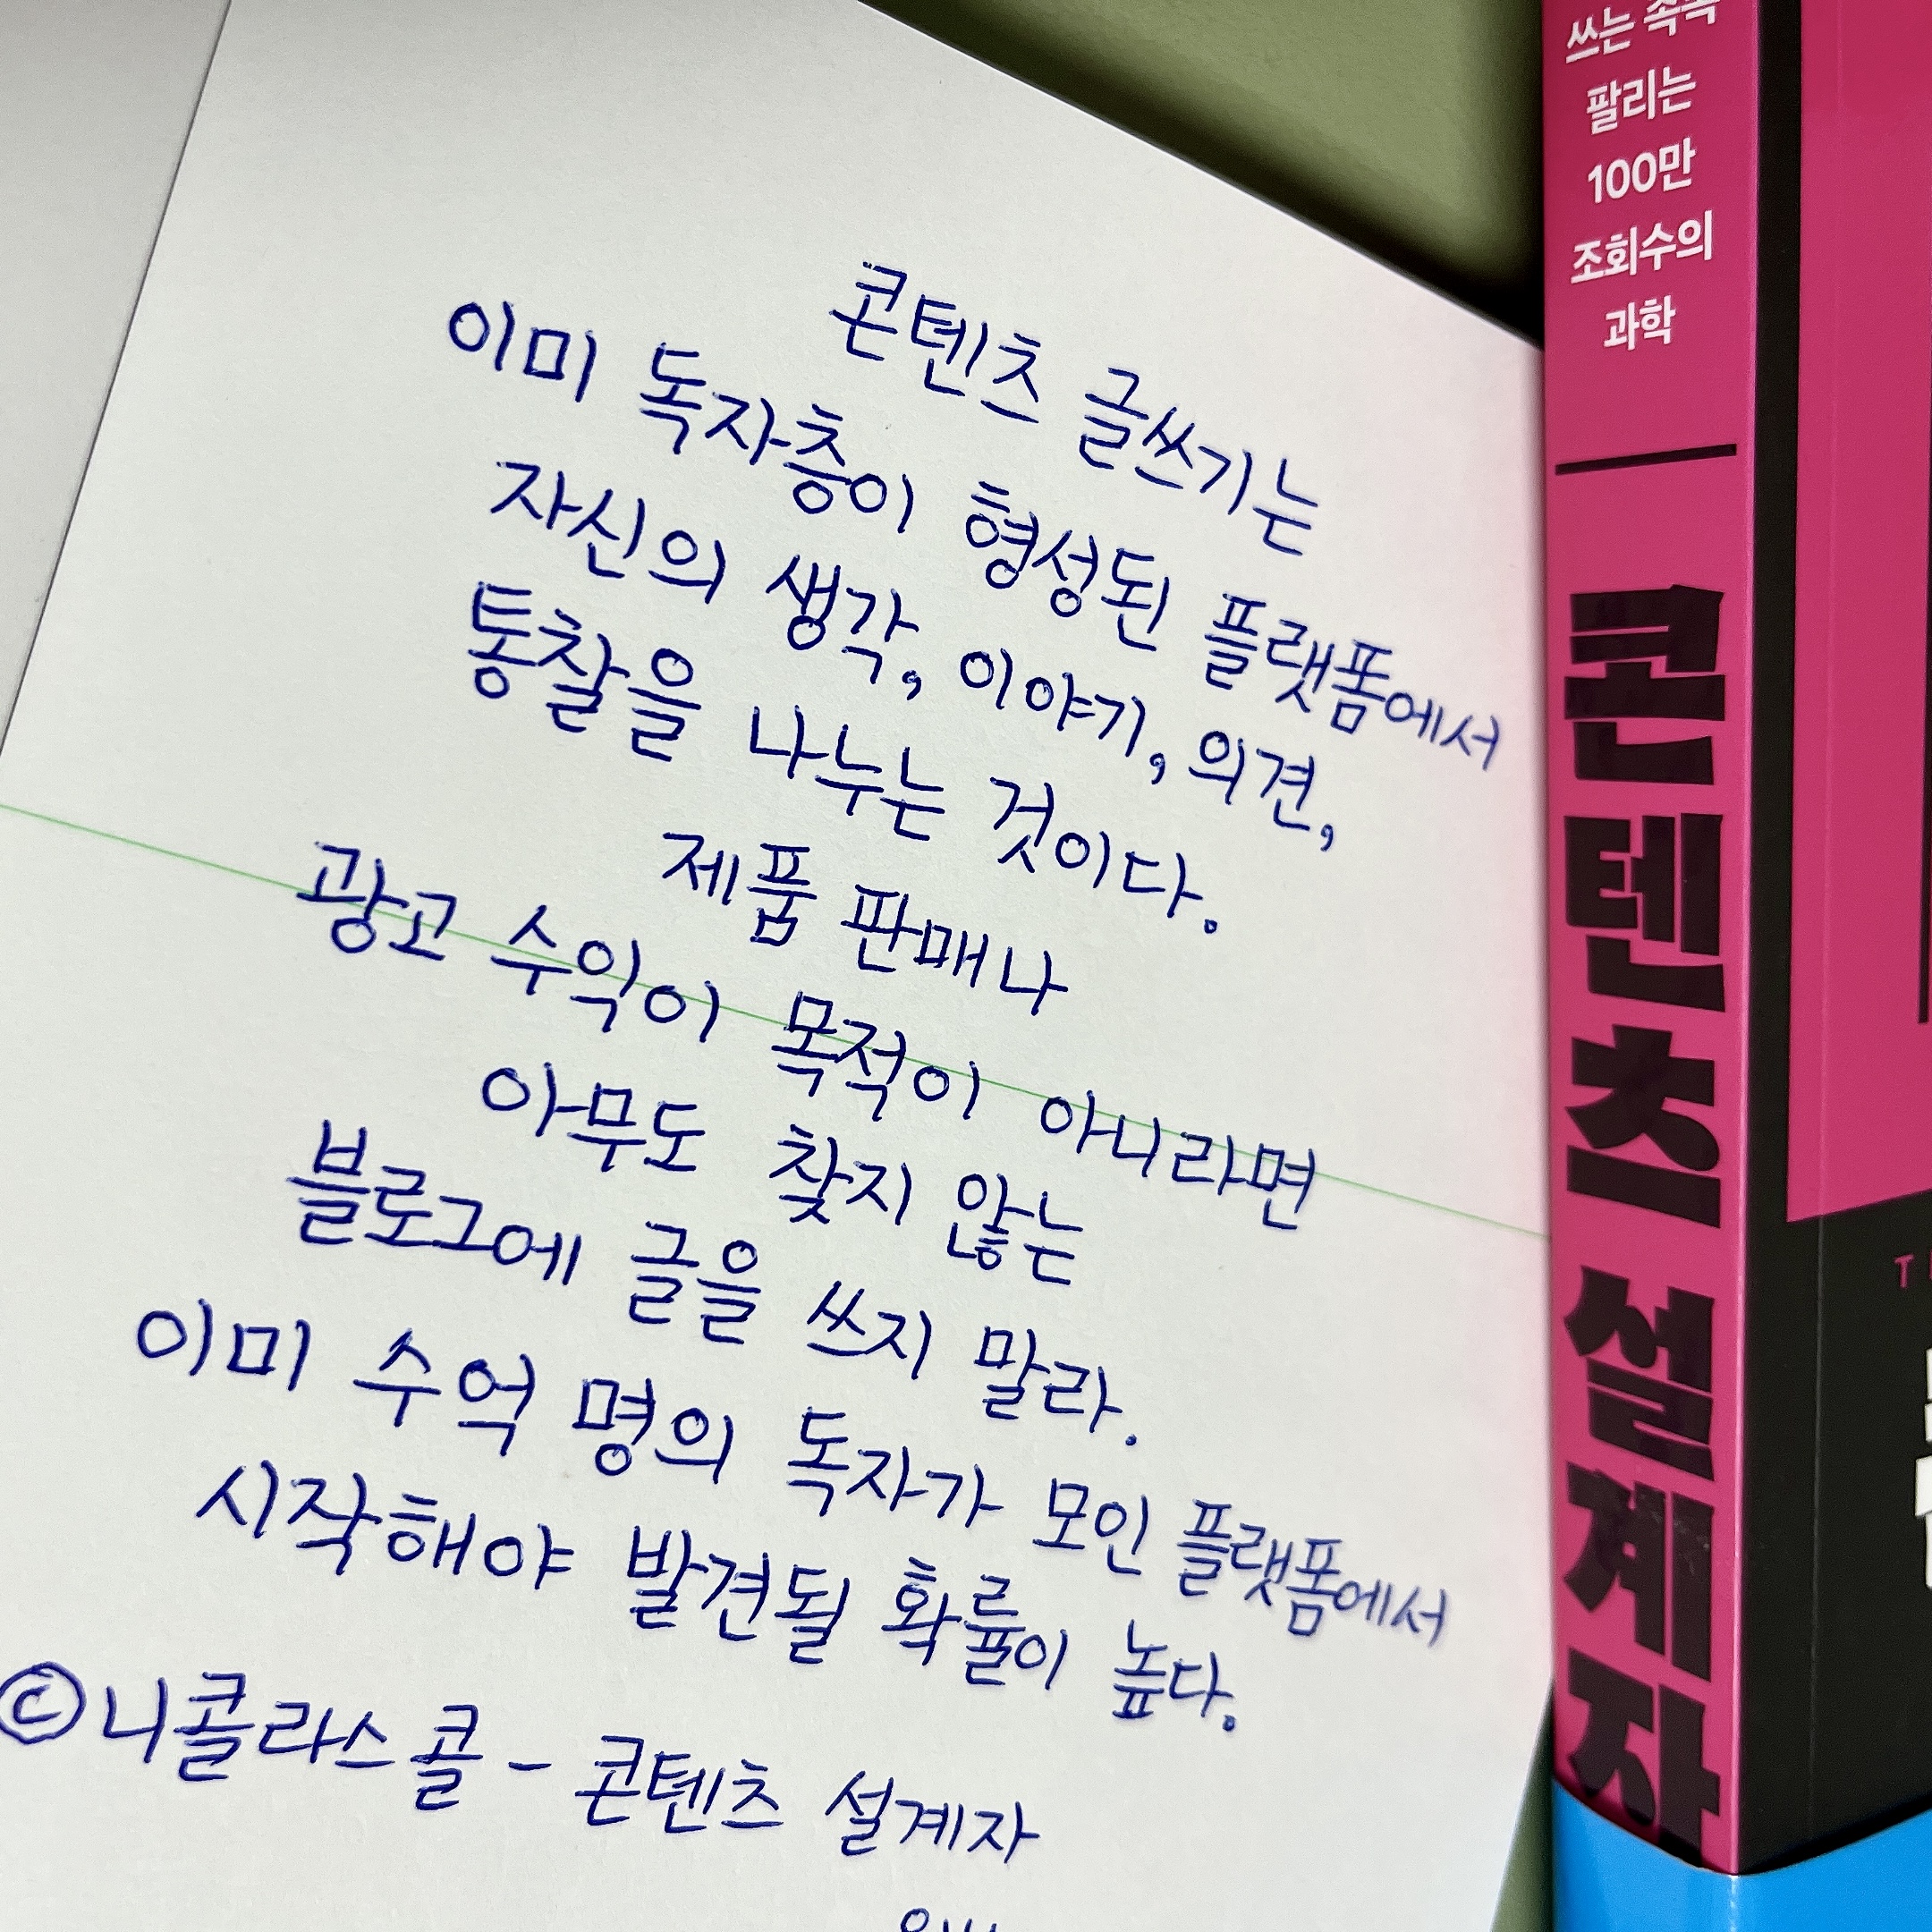 콘텐츠 글쓰기는
이미 독자층이 형성된 플랫폼에서
자신의 생각, 이야기, 의견,
통찰을 나누는 것이다.
제품 판매나
광고 수익이 목적이 아니라면
아무도 찾지 않는
블로그에 글을 쓰지 말라.
이미 수억 명의 독자가 모인 플랫폼에서
시작해야 발견될 확률이 높다.
©니콜라스 콜 - 콘텐츠 설계자
쓰는 족족
팔리는
100만
조회수의
과학
콘텐츠 설계자